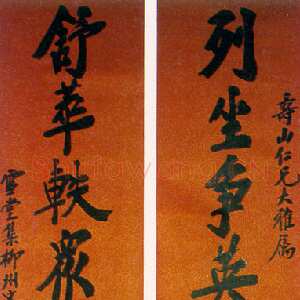 壽山仁兄大雅属
列坐争英
舒華軼
雪堂集柳州